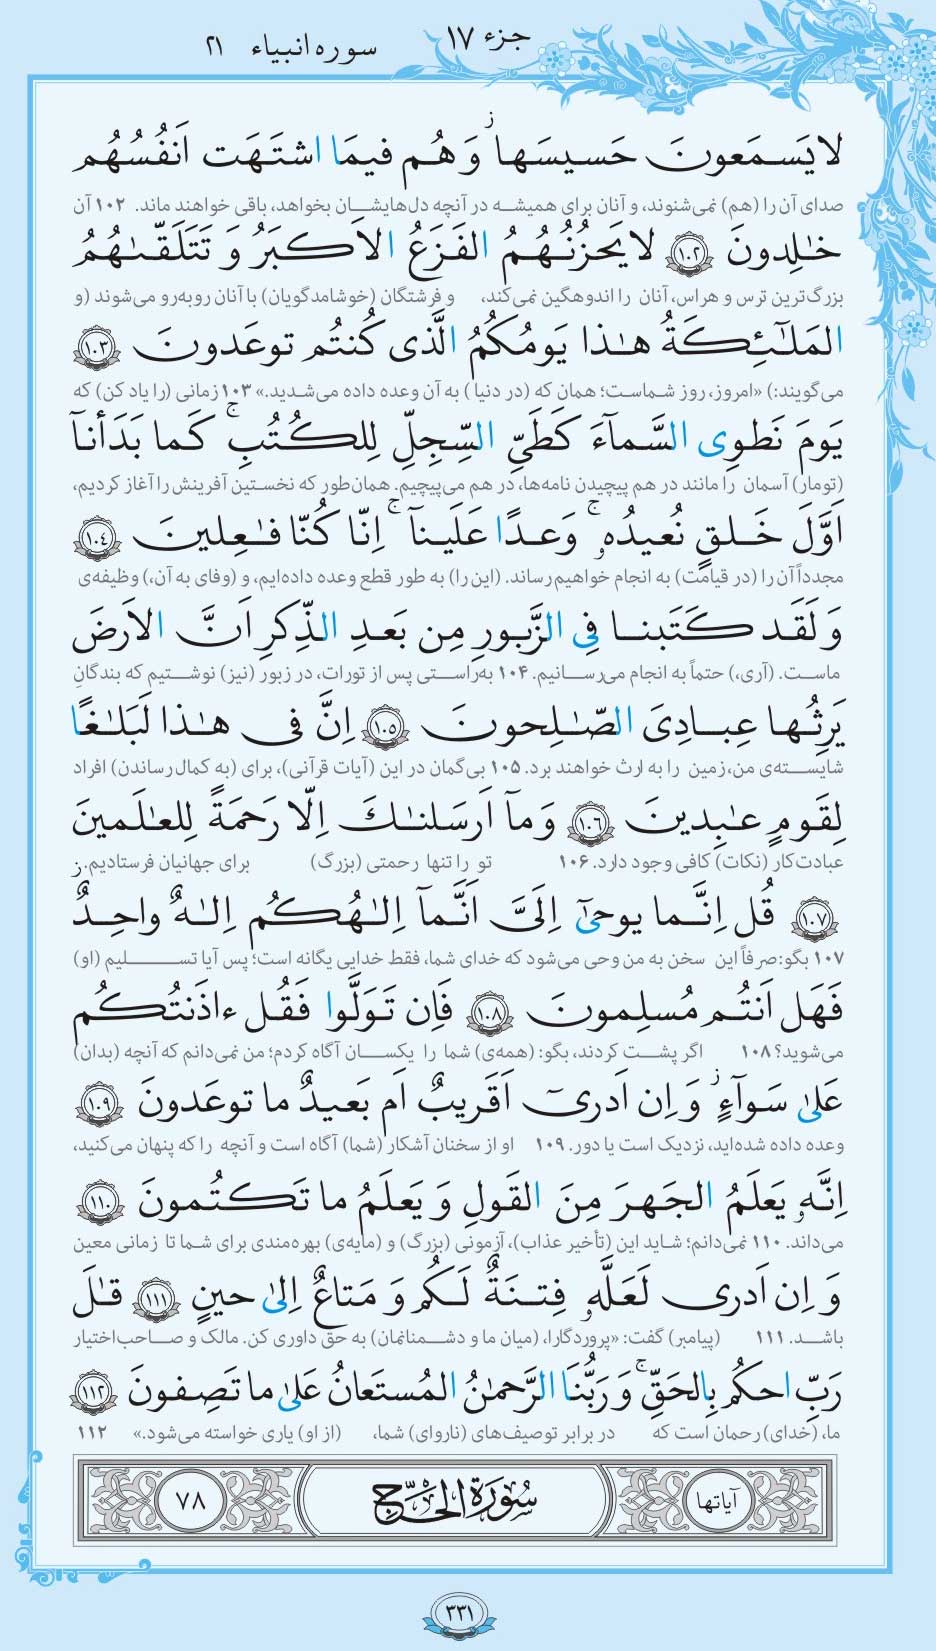 جزء ۱۷
سوره انبیاء ۲۱
لا یَسمَعونَ حَسیسَها ۖ وَ هُم فیمَا اشتَهَت اَنفُسُهُم
صدای آن را (هم) نمی‌شنوند، و آنان برای همیشه در آنچه دل‌هایشان بخواهد، باقی خواهند ماند. ۱۰۲ آن
خٰلِدونَ ﴿۱۰۲﴾ لا یَحزُنُهُمُ الفَزَعُ الاَکبَرُ وَ تَتَلَقّٰىهُمُ
بزرگ‌ترین ترس و هراس، آنان را اندوهگین نمی‌کند، و فرشتگان (خوشامدگویان) با آنان روبه‌رو می‌شوند (و
المَلٰٓئِکَةُ هٰذا یَومُکُمُ الَّذی کُنتُم توعَدونَ ﴿۱۰۳﴾
می‌گویند:) «امروز، روز شماست؛ همان که (در دنیا) به آن وعده داده می‌شدید.» ۱۰۳ زمانی (را یاد کن) که
یَومَ نَطوِی السَّمآءَ کَطَیِّ السِّجِلِّ لِلکُتُبِ ۚ کَما بَدَأنآ
(تومار) آسمان را مانند در هم پیچیدن نامه‌ها، در هم می‌پیچیم. همان‌طور که نخستین آفرینش را آغاز کردیم،
اَوَّلَ خَلقٍ نُعیدُهٗ ۚ وَعدًا عَلَینآ ۚ اِنّا کُنّا فٰعِلینَ ﴿۱۰٤﴾
مجدداً آن را (در قیامت) به انجام خواهیم رساند. (این را) به طور قطع وعده داده‌ایم، و (وفای به آن،) وظیفه‌ی
وَ لَقَد کَتَبنا فِی الزَّبورِ مِن بَعدِ الذِّکرِ اَنَّ الاَرضَ
ماست. (آری،) حتماً به انجام می‌رسانیم. ۱۰۴ به‌راستی پس از تورات، در زبور (نیز) نوشتیم که بندگانِ
یَرِثُها عِبادِیَ الصّٰلِحونَ ﴿۱۰۵﴾ اِنَّ فی هٰذا لَبَلٰغًا
شایسته‌ی من، زمین را به ارث خواهند برد. ۱۰۵ بی‌گمان در این (آیات قرآنی)، برای (به کمال رساندن) افراد
لِقَومٍ عٰبِدینَ ﴿۱۰۶﴾ وَمآ اَرسَلنٰکَ اِلّا رَحمَةً لِلعٰلَمینَ
عبادت‌کار (نکات) کافی وجود دارد. ۱۰۶ تو را تنها رحمتی (بزرگ) برای جهانیان فرستادیم.
﴿۱۰۷﴾ قُل اِنَّما یوحیٰٓ اِلَیَّ اَنَّمآ اِلٰهُکُم اِلٰهٌ واحِدٌ ۖ
۱۰۷ بگو: صرفاً این سخن به من وحی می‌شود که خدای شما، فقط خدایی یگانه است؛ پس آیا تسلیم (او)
فَهَل اَنتُم مُسلِمونَ ﴿۱۰۸﴾ فَاِن تَوَلَّوا فَقُل ءاذَنتُکُم
می‌شوید؟ ۱۰۸ اگر پشت کردند، بگو: (همه‌ی) شما را یکسان آگاه کردم؛ من نمی‌دانم که آنچه (بدان)
عَلیٰ سَوآءٍ ۖ وَ اِن اَدریٓ اَقَریبٌ اَم بَعیدٌ ما توعَدونَ ﴿۱۰۹﴾
وعده داده شده‌اید، نزدیک است یا دور. ۱۰۹ او از سخنان آشکار (شما) آگاه است و آنچه را که پنهان می‌کنید،
اِنَّهٗ یَعلَمُ الجَهرَ مِنَ القَولِ وَ یَعلَمُ ما تَکتُمونَ ﴿۱۱۰﴾
می‌داند. ۱۱۰ نمی‌دانم؛ شاید این (تأخیر عذاب)، آزمونی (بزرگ) و (مایه‌ی) بهره‌مندی برای شما تا زمانی معین
وَ اِن اَدری لَعَلَّهٗ فِتنَةٌ لَکُم وَ مَتاعٌ اِلیٰ حینٍ ﴿۱۱۱﴾ قٰلَ
باشد. ۱۱۱ (پیامبر) گفت: «پروردگارا، (میان ما و دشمنانمان) به حق داوری کن. مالک و صاحب‌اختیار
رَبِّ احکُم بِالحَقِّ ۚ وَ رَبُّنَا الرَّحمٰنُ المُستَعانُ عَلیٰ ما تَصِفونَ ﴿۱۱۲﴾
ما، (خدای) رحمان است که در برابر توصیف‌های (ناروای) شما، (از او) یاری خواسته می‌شود.» ۱۱۲
آیاتها سُورَةُ الحَجِّ ۷۸
۳۳۱